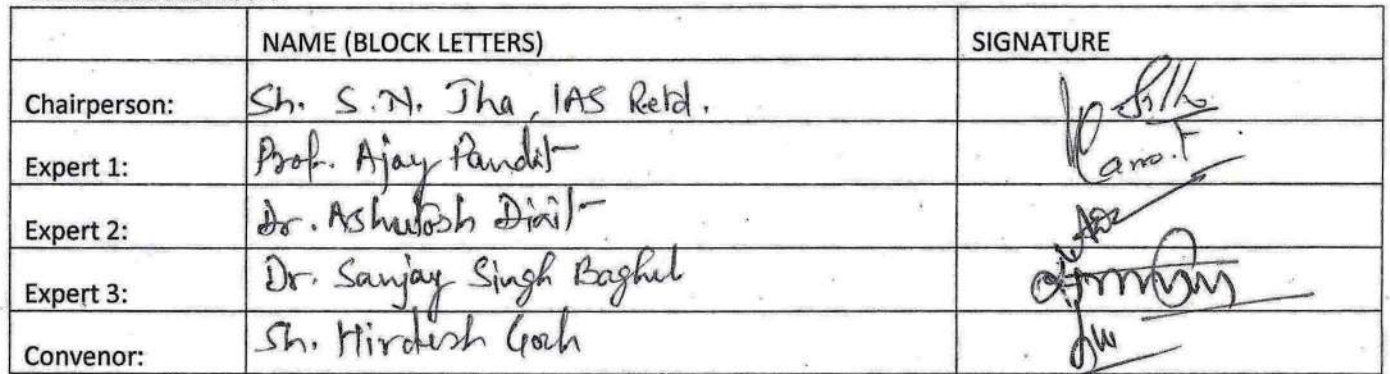 NAME (BLOCK LETTERS) SIGNATURE
Chairperson: Sh. S.N. Jha, IAS Retd.
Expert 1: Prof. Ajay Pandit
Expert 2: Dr. Ashutosh Dixit
Expert 3: Dr. Sanjay Singh Baghel
Convenor: Sh. Hirdesh